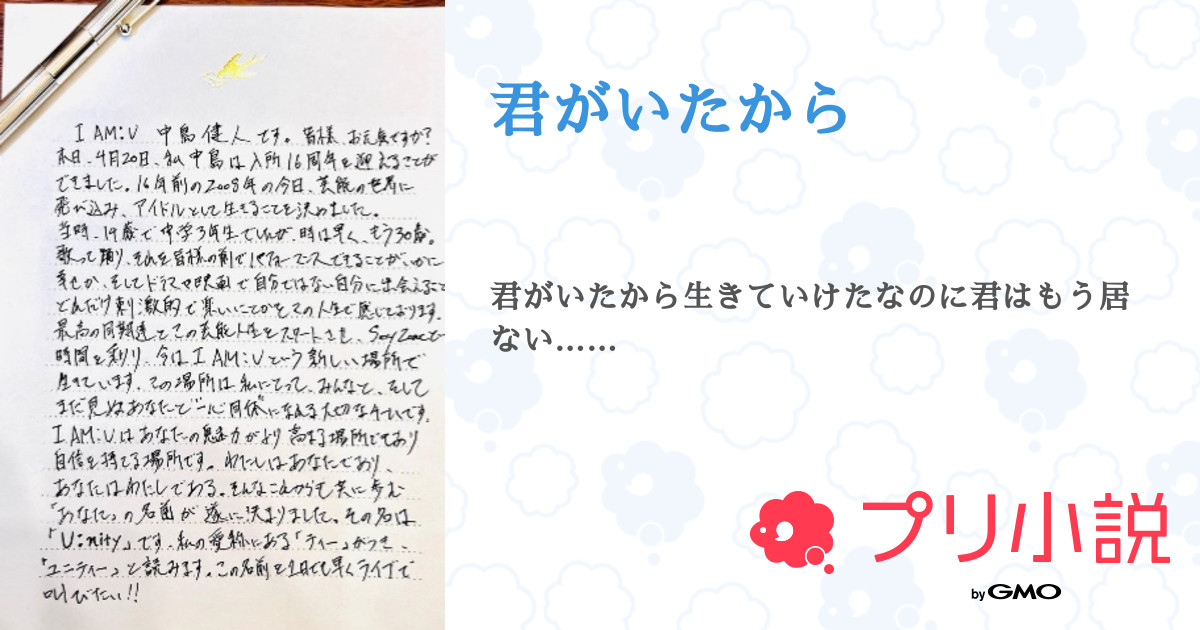 I AM:U 中島健人です。皆様、お元気ですか?
本日、4月20日、私中島は入所16周年を迎えることが
できました。16年前の2008年の今日、芸能の世界に
飛び込み、アイドルとして生きることを決めました。
当時、14歳で中学3年生でしたが、時は早く、もう30歳。
歌って踊り、それを皆様の前でパフォーマンスできることが、いかに
幸せか、そしてドラマや映画で自分ではない自分に出会えること
どれだけ刺激的で楽しいことかをこの人生で感じております。
最高の同期達とこの芸能人生をスタートさせ、Sexy Zoneで
時間を彩り、今はI AM:Uという新しい場所で
生きています。この場所は私にとって、みんなと、そして
まだ見ぬあなたと"一心同体"になれる大切なチームです。
I AM:Uはあなたの魅力がより高まる場所であり
自信を持てる場所です。わたしはあなたであり、
あなたはわたしである。そんなこれからも共に歩む
「あなた」の名前が遂に決まりました。その名は
「U:nity」です。私の愛称にある「ティー」がつき、
「ユニティー」と読みます。この名前を1日でも早くライブで
叫びたい!!
君がいたから
君がいたから生きていけたなのに君はもう居
ない……
プリ小説
by GMO